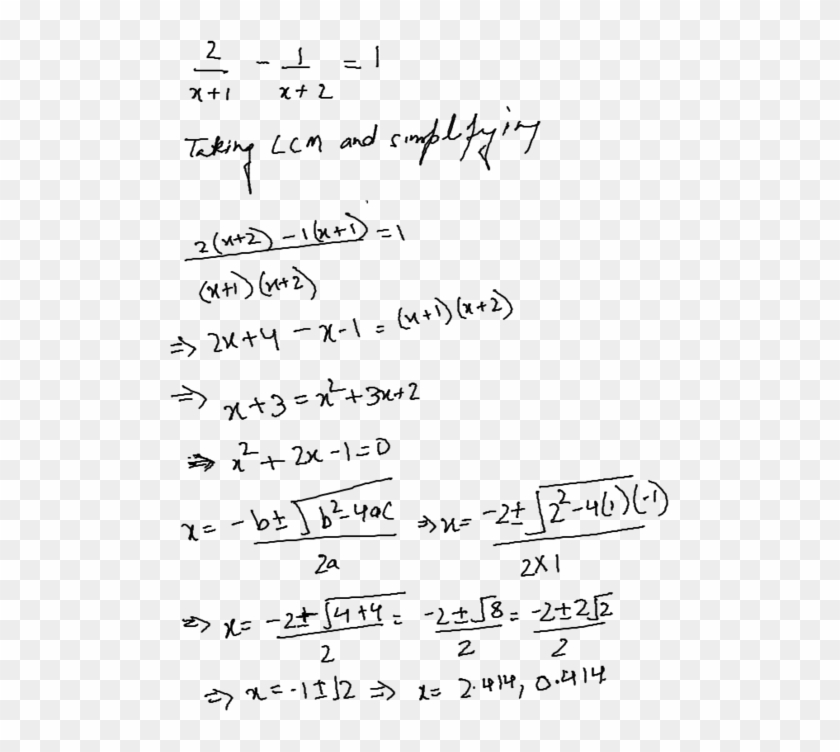 2/(x+1) - 1/(x+2) = 1
Taking LCM and simplifying
(2(x+2) - 1(x+1))/((x+1)(x+2)) = 1
⇒ 2x+4 - x-1 = (x+1)(x+2)
⇒ x+3 = x²+3x+2
⇒ x² + 2x - 1 = 0
x = (-b ± √(b²-4ac))/(2a) ⇒ x = (-2 ± √(2²-4(1)(-1)))/(2×1)
⇒ x = (-2 ± √(4+4))/2 = (-2 ± √8)/2 = (-2 ± 2√2)/2
⇒ x = -1 ± √2 ⇒ x = 2.414, 0.414